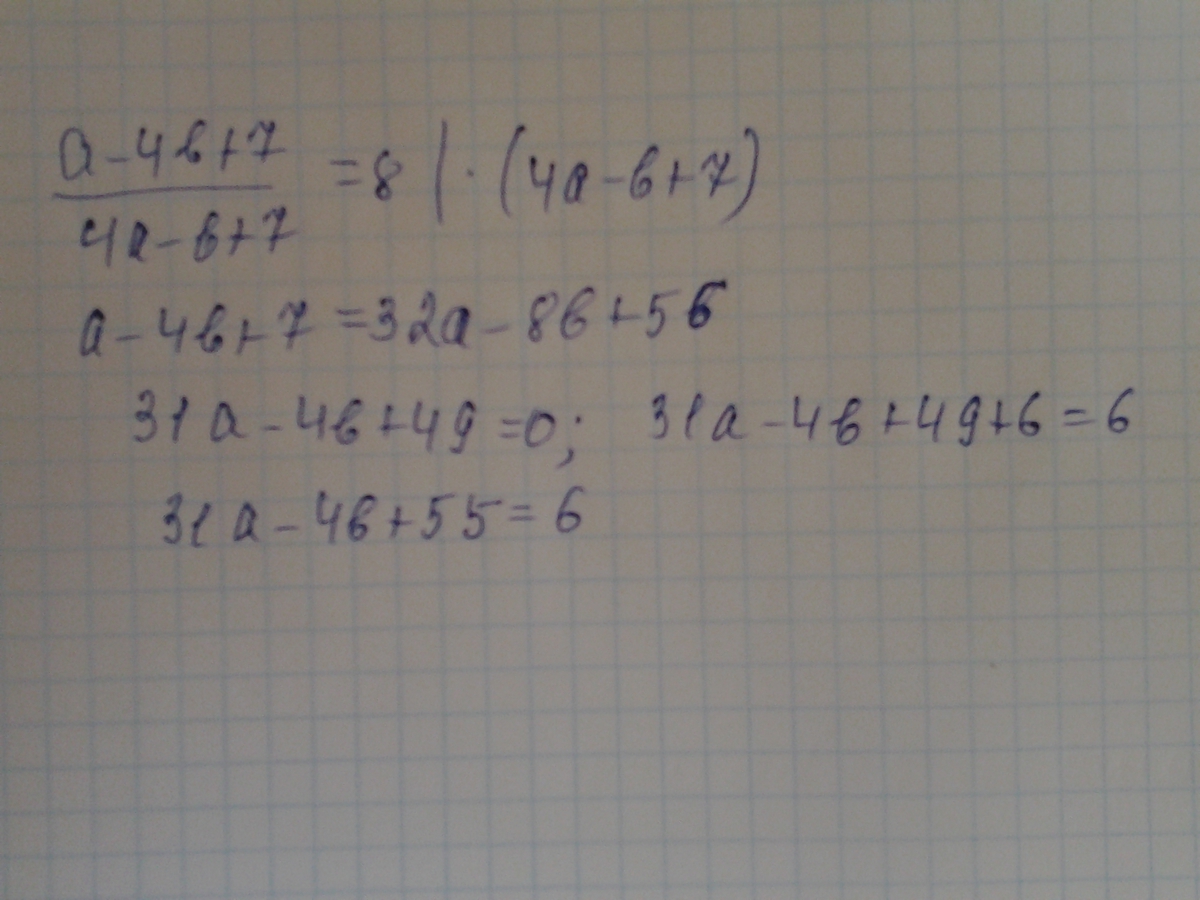 a-4в+7 / 4a-в+7 =8 | · (4a-в+7)
a-4в+7=32a-8в+56
31a-4в+49=0; 31a-4в+49+6=6
31a-4в+55=6